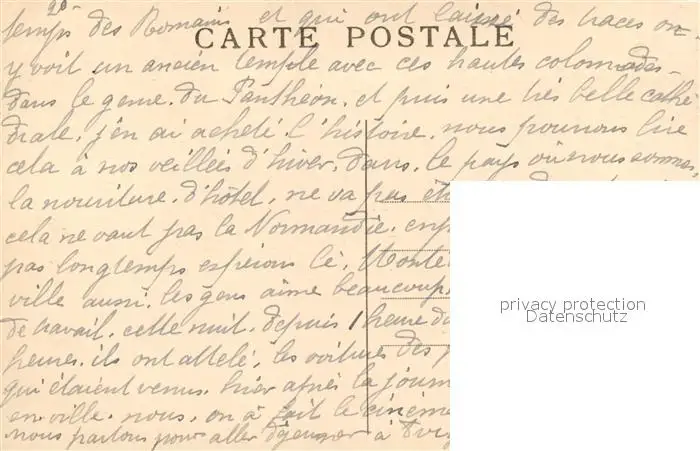 20
temps des Romains et qui ont laissé des traces on
CARTE POSTALE
y voit un ancien temple avec ces hautes colonnades
dans le genre du Panthéon, et puis une très belle cathé
drale, j'en ai acheté l'histoire, nous pourrons lire
cela à nos veillées d'hiver, Dans le pays où nous sommes,
la nouriture d'hôtel, ne va pas
cela ne vaut pas la Normandie,
pas longtemps espérons le,
ville aussi, les gens aime beaucoup
de travail, cette nuit, depuis 1 heure
heures, ils ont attelé, les voitures des
qui étaient venus, hier après la
en ville, nous, on a fait le
nous partons pour aller déjeuner à
privacy protection
Datenschutz